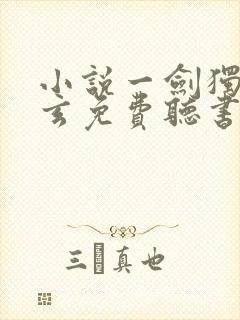 小説一劍獨
玄免費聽書
三真也